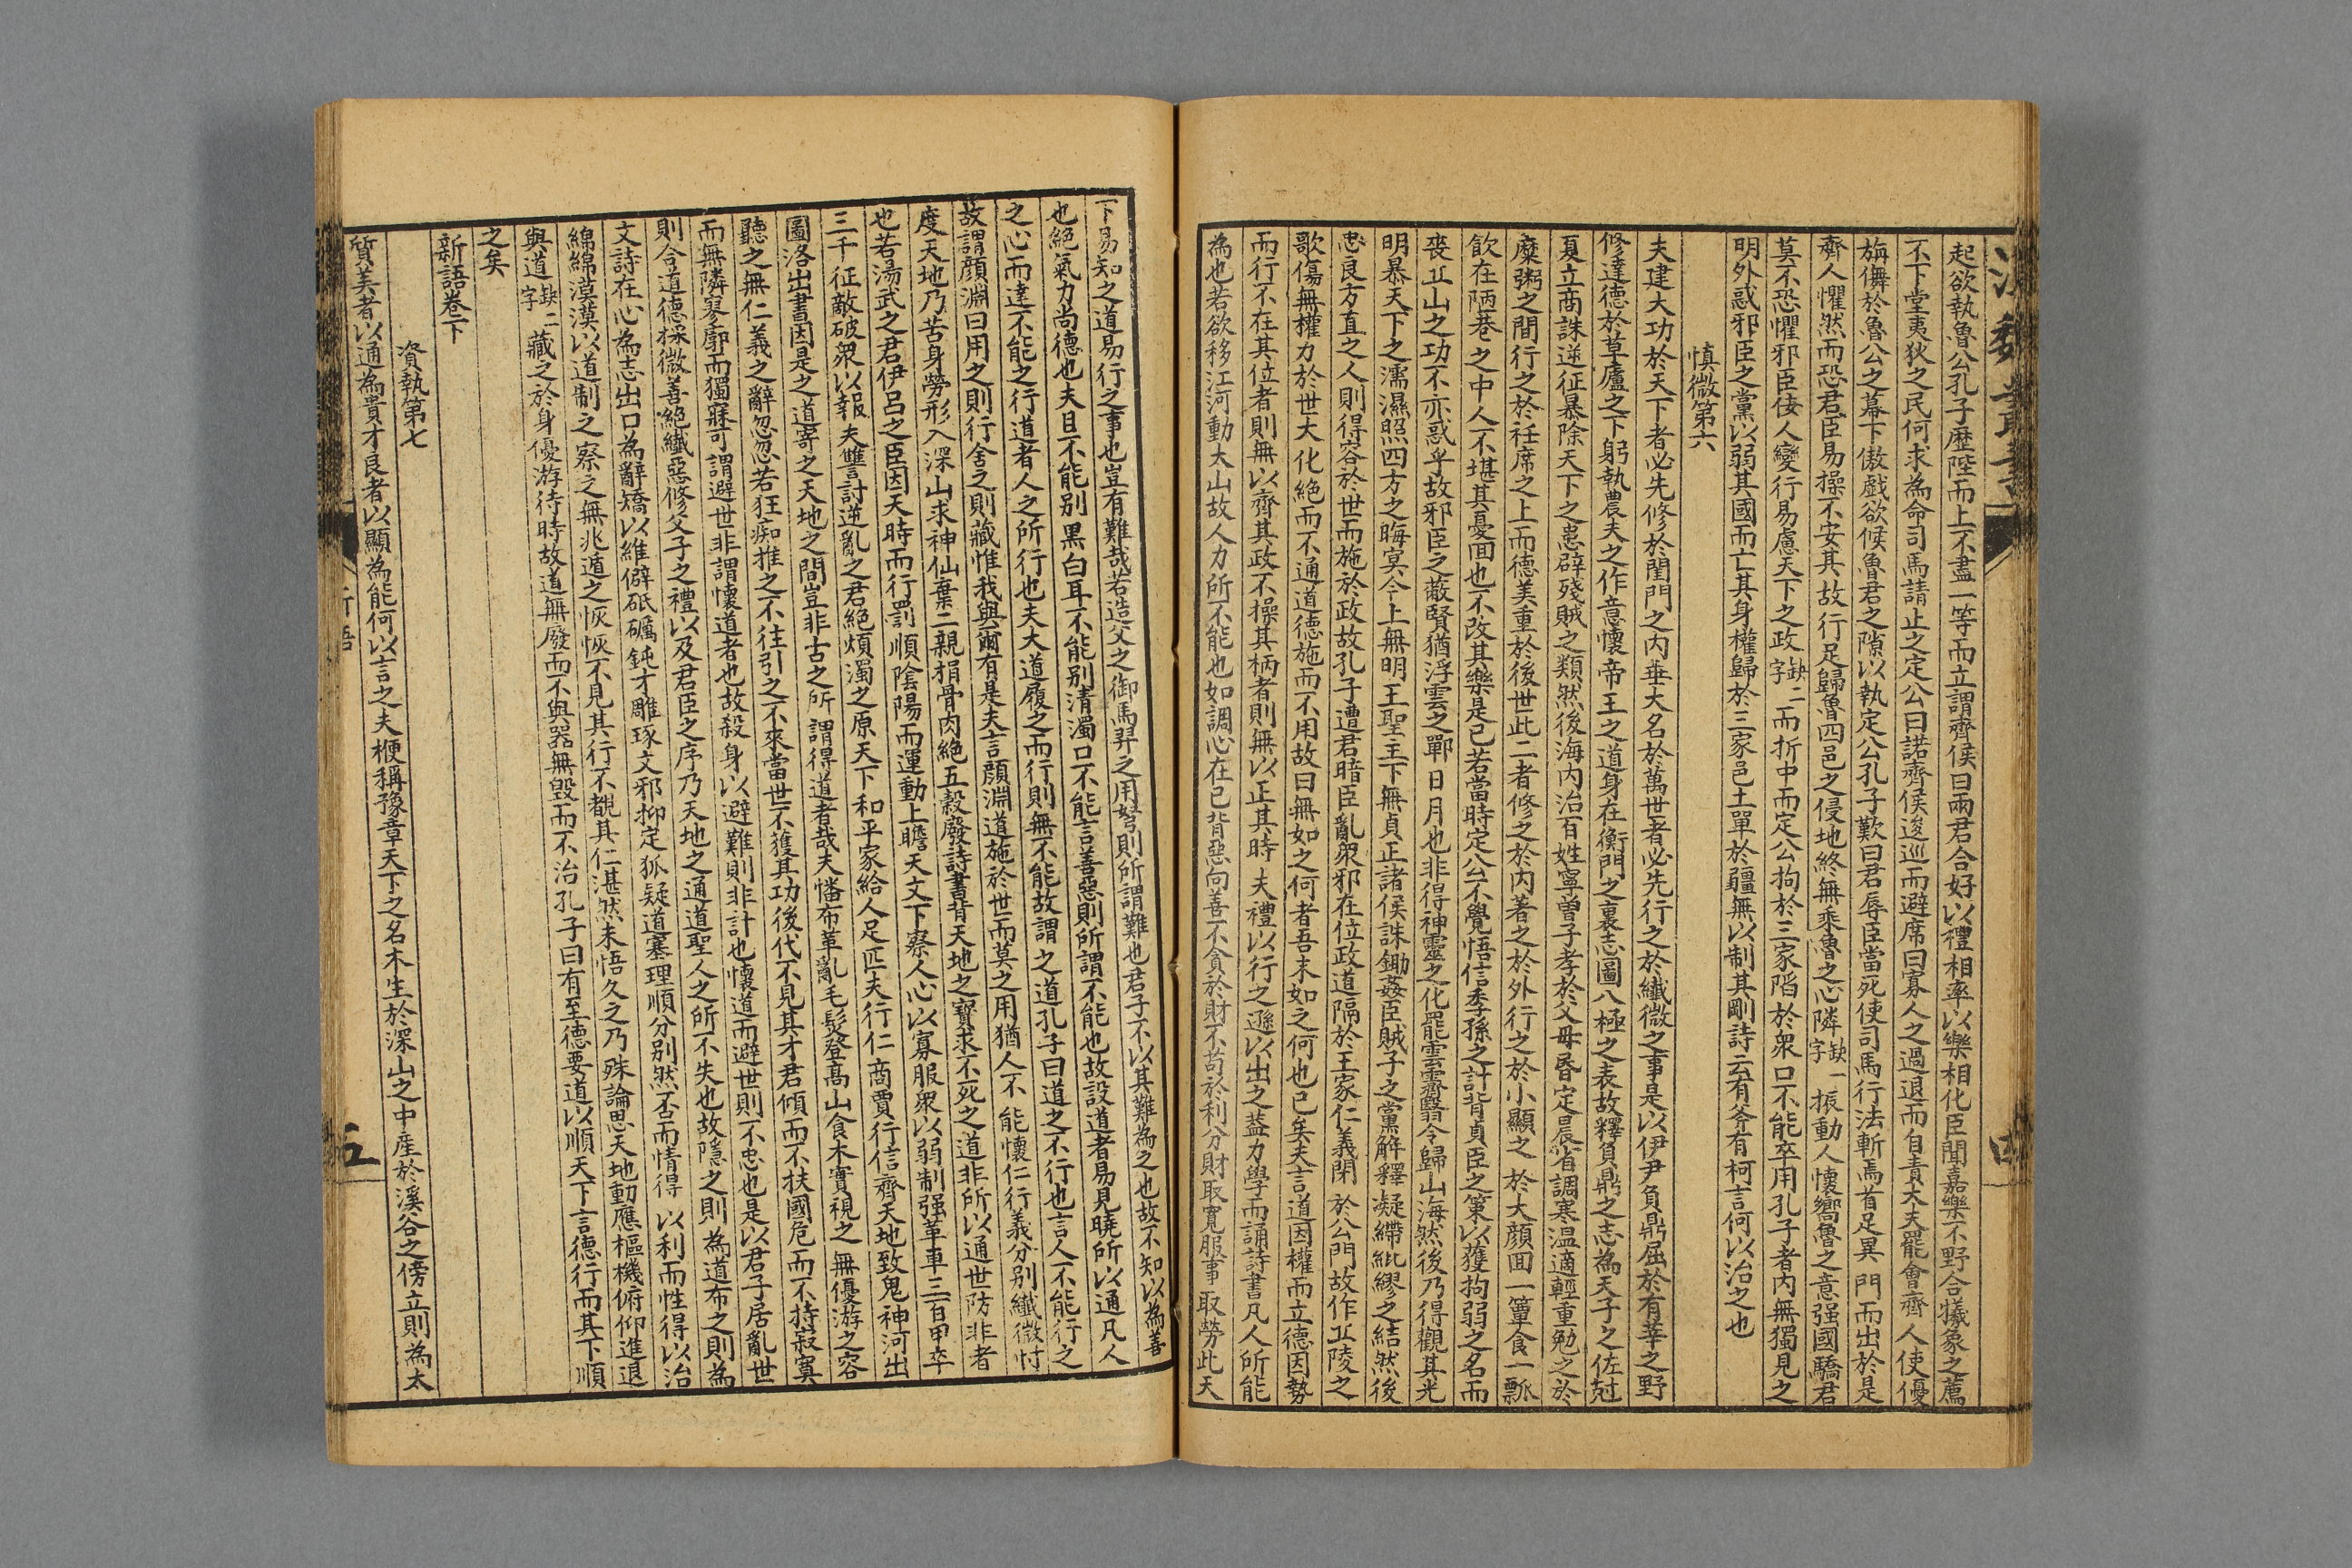 起欲執魯公孔子歷陛而上不盡一等而立謂齊侯曰兩君合好以禮相率以樂相化臣聞嘉樂不野合犧象之薦
不下堂夷狄之民何求為命司馬請止之定公曰諾齊侯逡巡而避席曰寡人之過退而自責大夫罷會齊人使優
旃儛於魯公之幕下傲戲欲候魯君之隙以執定公孔子歎曰君辱臣當死使司馬行法斬焉首足異門而出於是
齊人懼然而恐君臣易操不安其故行足歸魯四邑之侵地終無乘魯之心隣缺一字振動人懷嚮魯之意强國驕君
莫不恐懼邪臣佞人變行易慮天下之政缺二字而折中而定公拘於三家陷於衆口不能卒用孔子者內無獨見之
明外惑邪臣之黨以弱其國而亡其身權歸於三家邑土單於疆無以制其剛詩云有斧有柯言何以治之也
慎微第六
夫建大功於天下者必先修於閨門之內垂大名於萬世者必先行之於纖微之事是以伊尹負鼎屈於有莘之野
修達德於草廬之下躬執農夫之作意懷帝王之道身在衡門之裏志圖八極之表故釋負鼎之志為天子之佐尅
夏立商誅逆征暴除天下之患辟殘賊之類然後海內治百姓寧曾子孝於父母昏定晨省調寒温適輕重勉之於
糜粥之間行之於衽席之上而德美重於後世此二者修之於內著之於外行之於小顯之於大顔回一簞食一瓢
飲在陋巷之中人不堪其憂回也不改其樂是已若當時定公不覺悟信季孫之計背貞臣之策以獲拘弱之名而
喪丘山之功不亦惑乎故邪臣之蔽賢猶浮雲之鄣日月也非得神靈之化罷雲霽翳令歸山海然後乃得觀其光
明暴天下之濡濕照四方之晦冥今上無明王聖主下無貞正諸侯誅鋤姦臣賊子之黨解釋凝縛紕繆之結然後
忠良方直之人則得容於世而施於政故孔子遭君暗臣亂衆邪在位政道隔於王家仁義閉於公門故作丘陵之
歌傷無權力於世大化絶而不通道德施而不用故曰無如之何者吾末如之何也已矣夫言道因權而立德因勢
而行不在其位者則無以齊其政不操其柄者則無以正其時夫禮以行之遜以出之蓋力學而誦詩書凡人所能
為也若欲移江河動太山故人力所不能也如調心在己背惡向善不貪於財不苟於利分財取寬服事取勞此天
下易知之道易行之事也豈有難哉若造父之御馬羿之用弩則所謂難也君子不以其難為之也故不知以為善
也絶氣力尚德也夫目不能別黑白耳不能別清濁口不能言善惡則所謂不能也故設道者易見曉所以通凡人
之心而達不能之行道者人之所行也夫大道履之而行則無不能故謂之道孔子曰道之不行也言人不能行之
故謂顔淵曰用之則行舍之則藏惟我與爾有是夫言顔淵道施於世而莫之用猶人不能懷仁行義分別纖微忖
度天地乃苦身勞形入深山求神仙棄二親捐骨肉絶五穀廢詩書背天地之寶求不死之道非所以通世防非者
也若湯武之君伊呂之臣因天時而行罰順陰陽而運動上瞻天文下察人心以寡服衆以弱制强革車三百甲卒
三千征敵破衆以報大讐討逆亂之君絶煩濁之原天下和平家給人足匹夫行仁商賈行信齊天地致鬼神河出
圖洛出書因是之道寄之天地之間豈非古之所謂得道者哉夫幡布革亂毛髮登高山食木實視之無優游之容
聽之無仁義之辭忽忽若狂痴推之不往引之不來當世不獲其功後代不見其才君傾而不扶國危而不持寂寞
而無隣寥廓而獨寐可謂避世非謂懷道者也故殺身以避難則非計也懷道而避世則不忠也是以君子居亂世
則合道德採微善絶纖惡修父子之禮以及君臣之序乃天地之通道聖人之所不失也故隱之則為道布之則為
文詩在心為志出口為辭矯以維僻砥礪鈍才雕琢文邪抑定狐疑道塞理順分別然否而情得以利而性得以治
綿綿漠漠以道制之察之無兆遁之恢恢不見其行不覩其仁湛然未悟久之乃殊論思天地動應樞機俯仰進退
與道缺二字藏之於身優游待時故道無廢而不與器無毀而不治孔子曰有至德要道以順天下言德行而其下順
之矣
新語卷下
資執第七
質美者以通為貴才良者以顯為能何以言之夫楩稱豫章天下之名木生於深山之中產於溪谷之傍立則為太
四
五